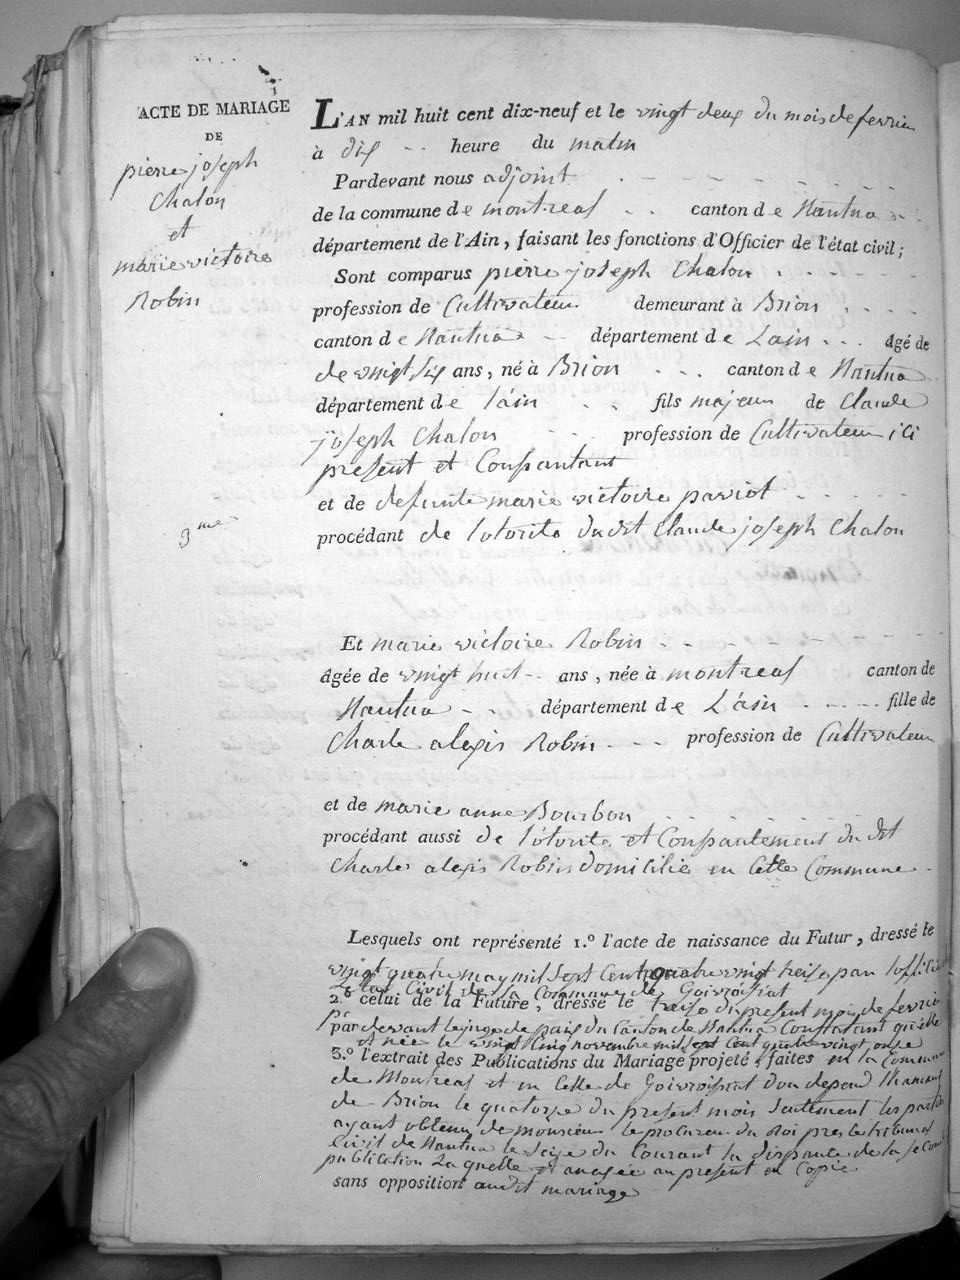 ACTE DE MARIAGE
DE
pierre joseph
Chalon
et
marie victoire
Robin
3me
L'AN mil huit cent dix-neuf et le vingt deux du mois de fevrier
à dix heure du matin
Pardevant nous adjoint
de la commune de montreal canton de Nantua
département de l'Ain, faisant les fonctions d'Officier de l'état civil;
Sont comparus pierre joseph Chalon
profession de Cultivateur demeurant à Brion
canton de Nantua département de Lain âgé de
de vingt six ans, né à Brion canton de Nantua
département de l'ain fils majeur de Claude
joseph Chalon profession de Cultivateur ici
present et Consantant
et de defunte marie victoire paviot
procédant de lotorite dudit Claude joseph Chalon
Et marie victoire Robin
âgée de vingt huit ans, née à montreal canton de
Nantua département de L'ain fille de
Charle alexis Robin profession de Cultivateur
et de marie anne Bourbon
procédant aussi de l'otorite et Consantement du dit
Charle alexis Robin domicilié en Cette Commune
Lesquels ont représenté 1.º l'acte de naissance du Futur, dressé le
vingt quatre may mil sept Cent quatre vingt treise par loffilié
De la Commune de Goivroisiat
2.º celui de la Future, dressé le treise du present mois de fevrier
par devant le juge de paix du Canton de Nantua Constatant qu'elle
et née le vingt Cinq novembre mil sept Cent quatre vingt onse
3.º l'extrait des Publications du Mariage projeté, faites en la Commune
de Montreal et en Celle de Goivroisiat dou depend
de Brion le quatorse du present mois seulement les parties
ayant obtenu de monsieur le procureur du Roi pres le tribunal
Civil de Nantua le seise du Courant la dispance de la seconde
publication Laquelle et anexée au present en Copie
sans opposition audit mariage